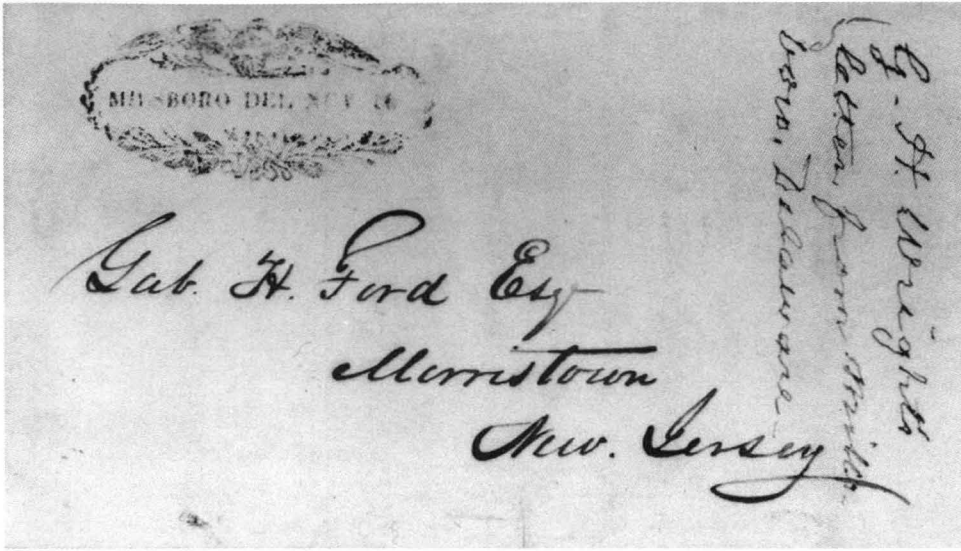 MILLSBORO DEL NOV 16
Gab. H. Ford Esq
Morristown
New. Jersey
G. H. Wrights
letter from Mills-
boro, Delaware